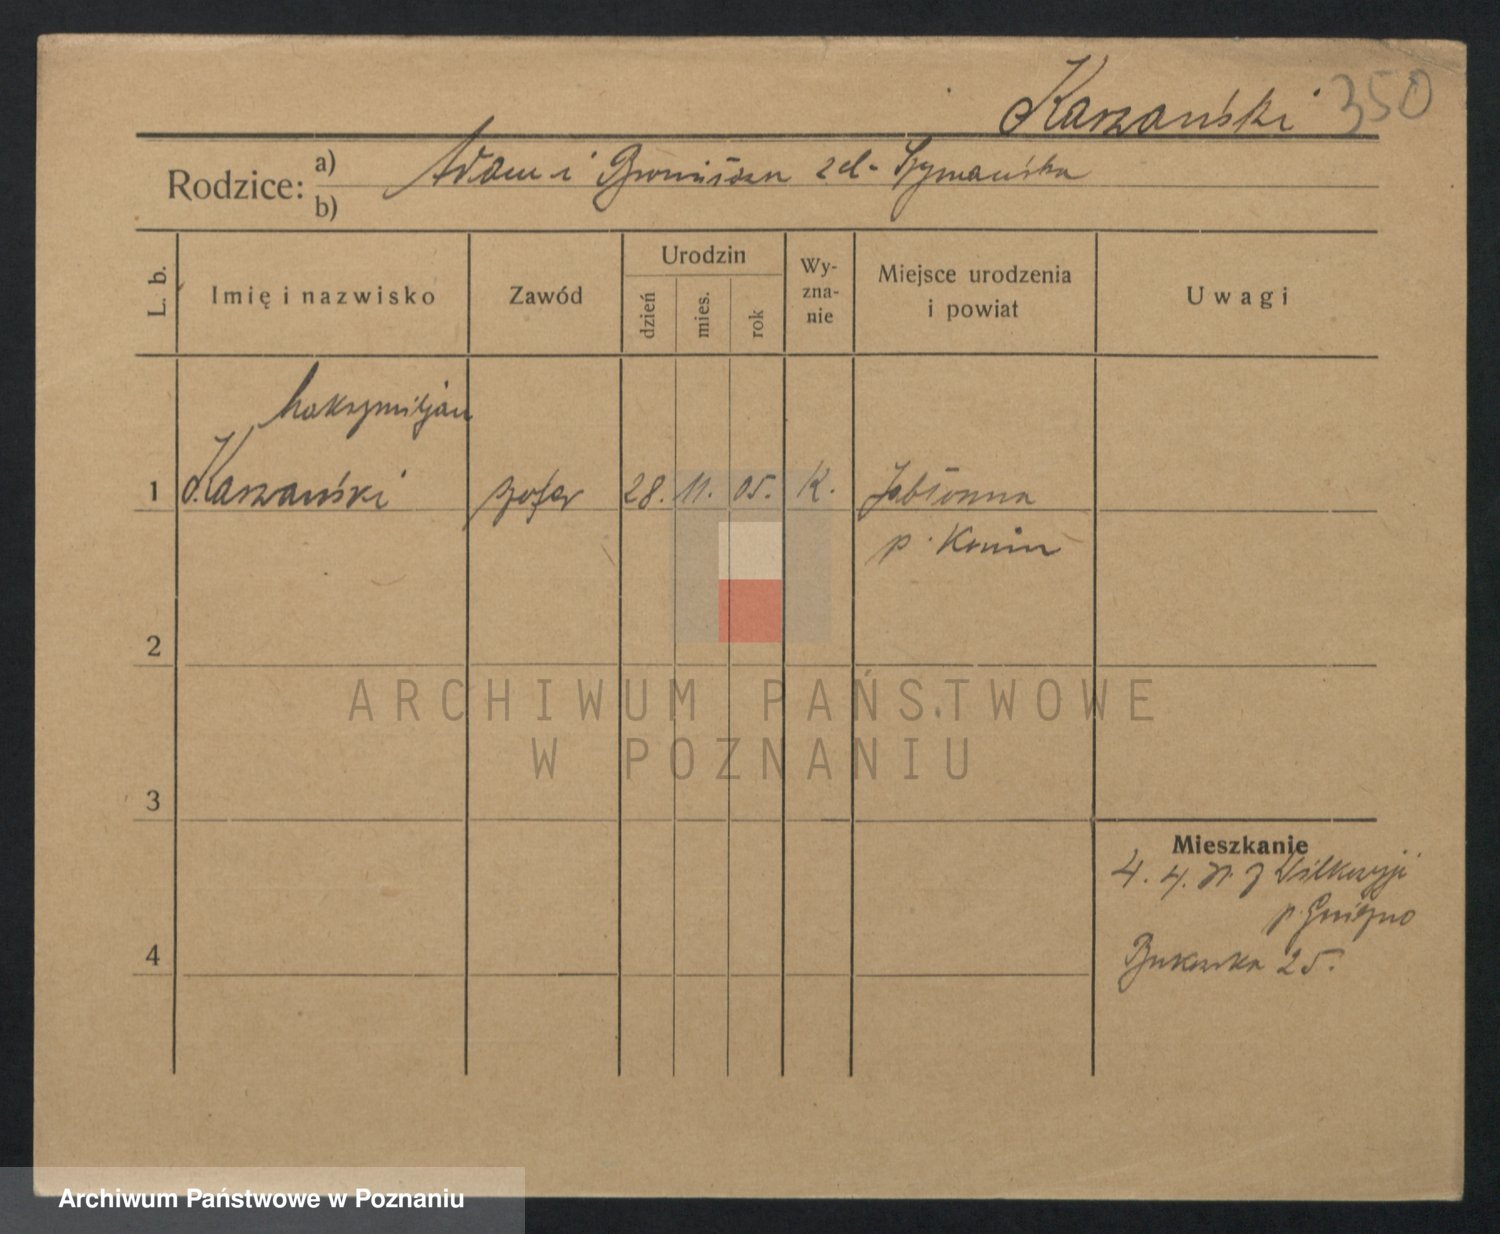 Karzański 350
Rodzice: a) b) Adam i Bronisława zd. Szymańska
L. b. Imię i nazwisko Zawód Urodzin dzień mies. rok Wy-zna-nie Miejsce urodzenia i powiat Uwagi
Maksymiljan
1 Karzański szofer 28. 11. 05. K. Jabłonna
p. Konin
2
ARCHIWUM PAŃSTWOWE
W POZNANIU
3
Mieszkanie
4. 4. z Wilkowyji
p. Gniezno
4 Bukowska 25.
Archiwum Państwowe w Poznaniu